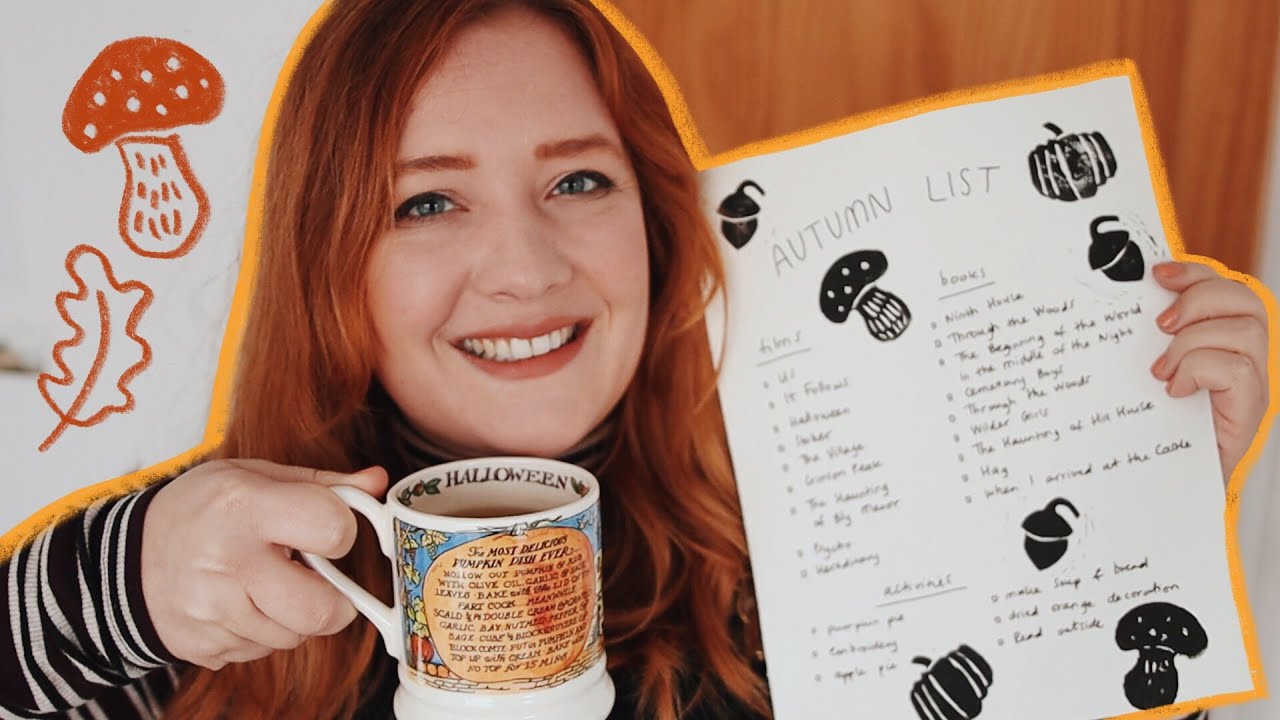 AUTUMN LIST
films
Us
It Follows
Halloween
Stoker
The Village
Crimson Peak
The Haunting
of Bly Manor
Psycho
Hereditary
books
Ninth House
Through the Woods
The Beginning of the World
in the Middle of the Night
Cemetery Boys
Through the Woods
Wilder Girls
The Haunting of Hill House
Hag
When I arrived at the Castle
activities
pumpkin pie
embroidery
apple pie
make soup & bread
dried orange decoration
Read outside
HALLOWEEN
The MOST DELICIOUS
PUMPKIN DISH EVER
HOLLOW OUT PUMPKIN
WITH OLIVE OIL, GARLIC &
LEAVES BAKE with the LID ON
PART COOK. MEANWHILE
SCALD DOUBLE CREAM
GARLIC, BAY, NUTMEG, PEPPER
SAGE CUBE ½ BLOCK
BLOCK COMTE PUT in PUMPKIN
TOP UP with CREAM BAKE
NO TOP FOR 15 MINS